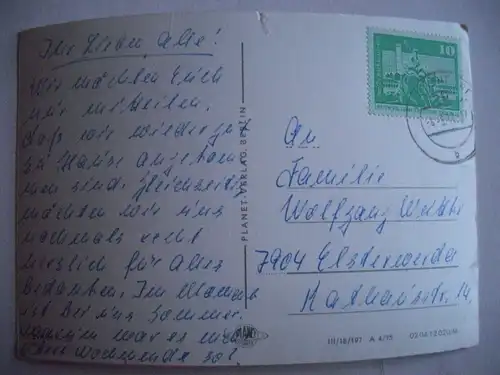 Ihr Lieben alle!
Wir möchten Euch
nur mitteilen,
daß wir wieder gut
zu Hause angekom
men sind, gleichzeitig
möchten wir uns
nochmals recht
herzlich für alles
bedanken. Im Moment
ist bei uns Sommer.
war es
Wochenende so!
PLANET-VERLAG BERLIN
PLANET
10
An
Familie
Wolfgang
7904 Elsterwerda
Str. 14
III/18/181 A 4/75